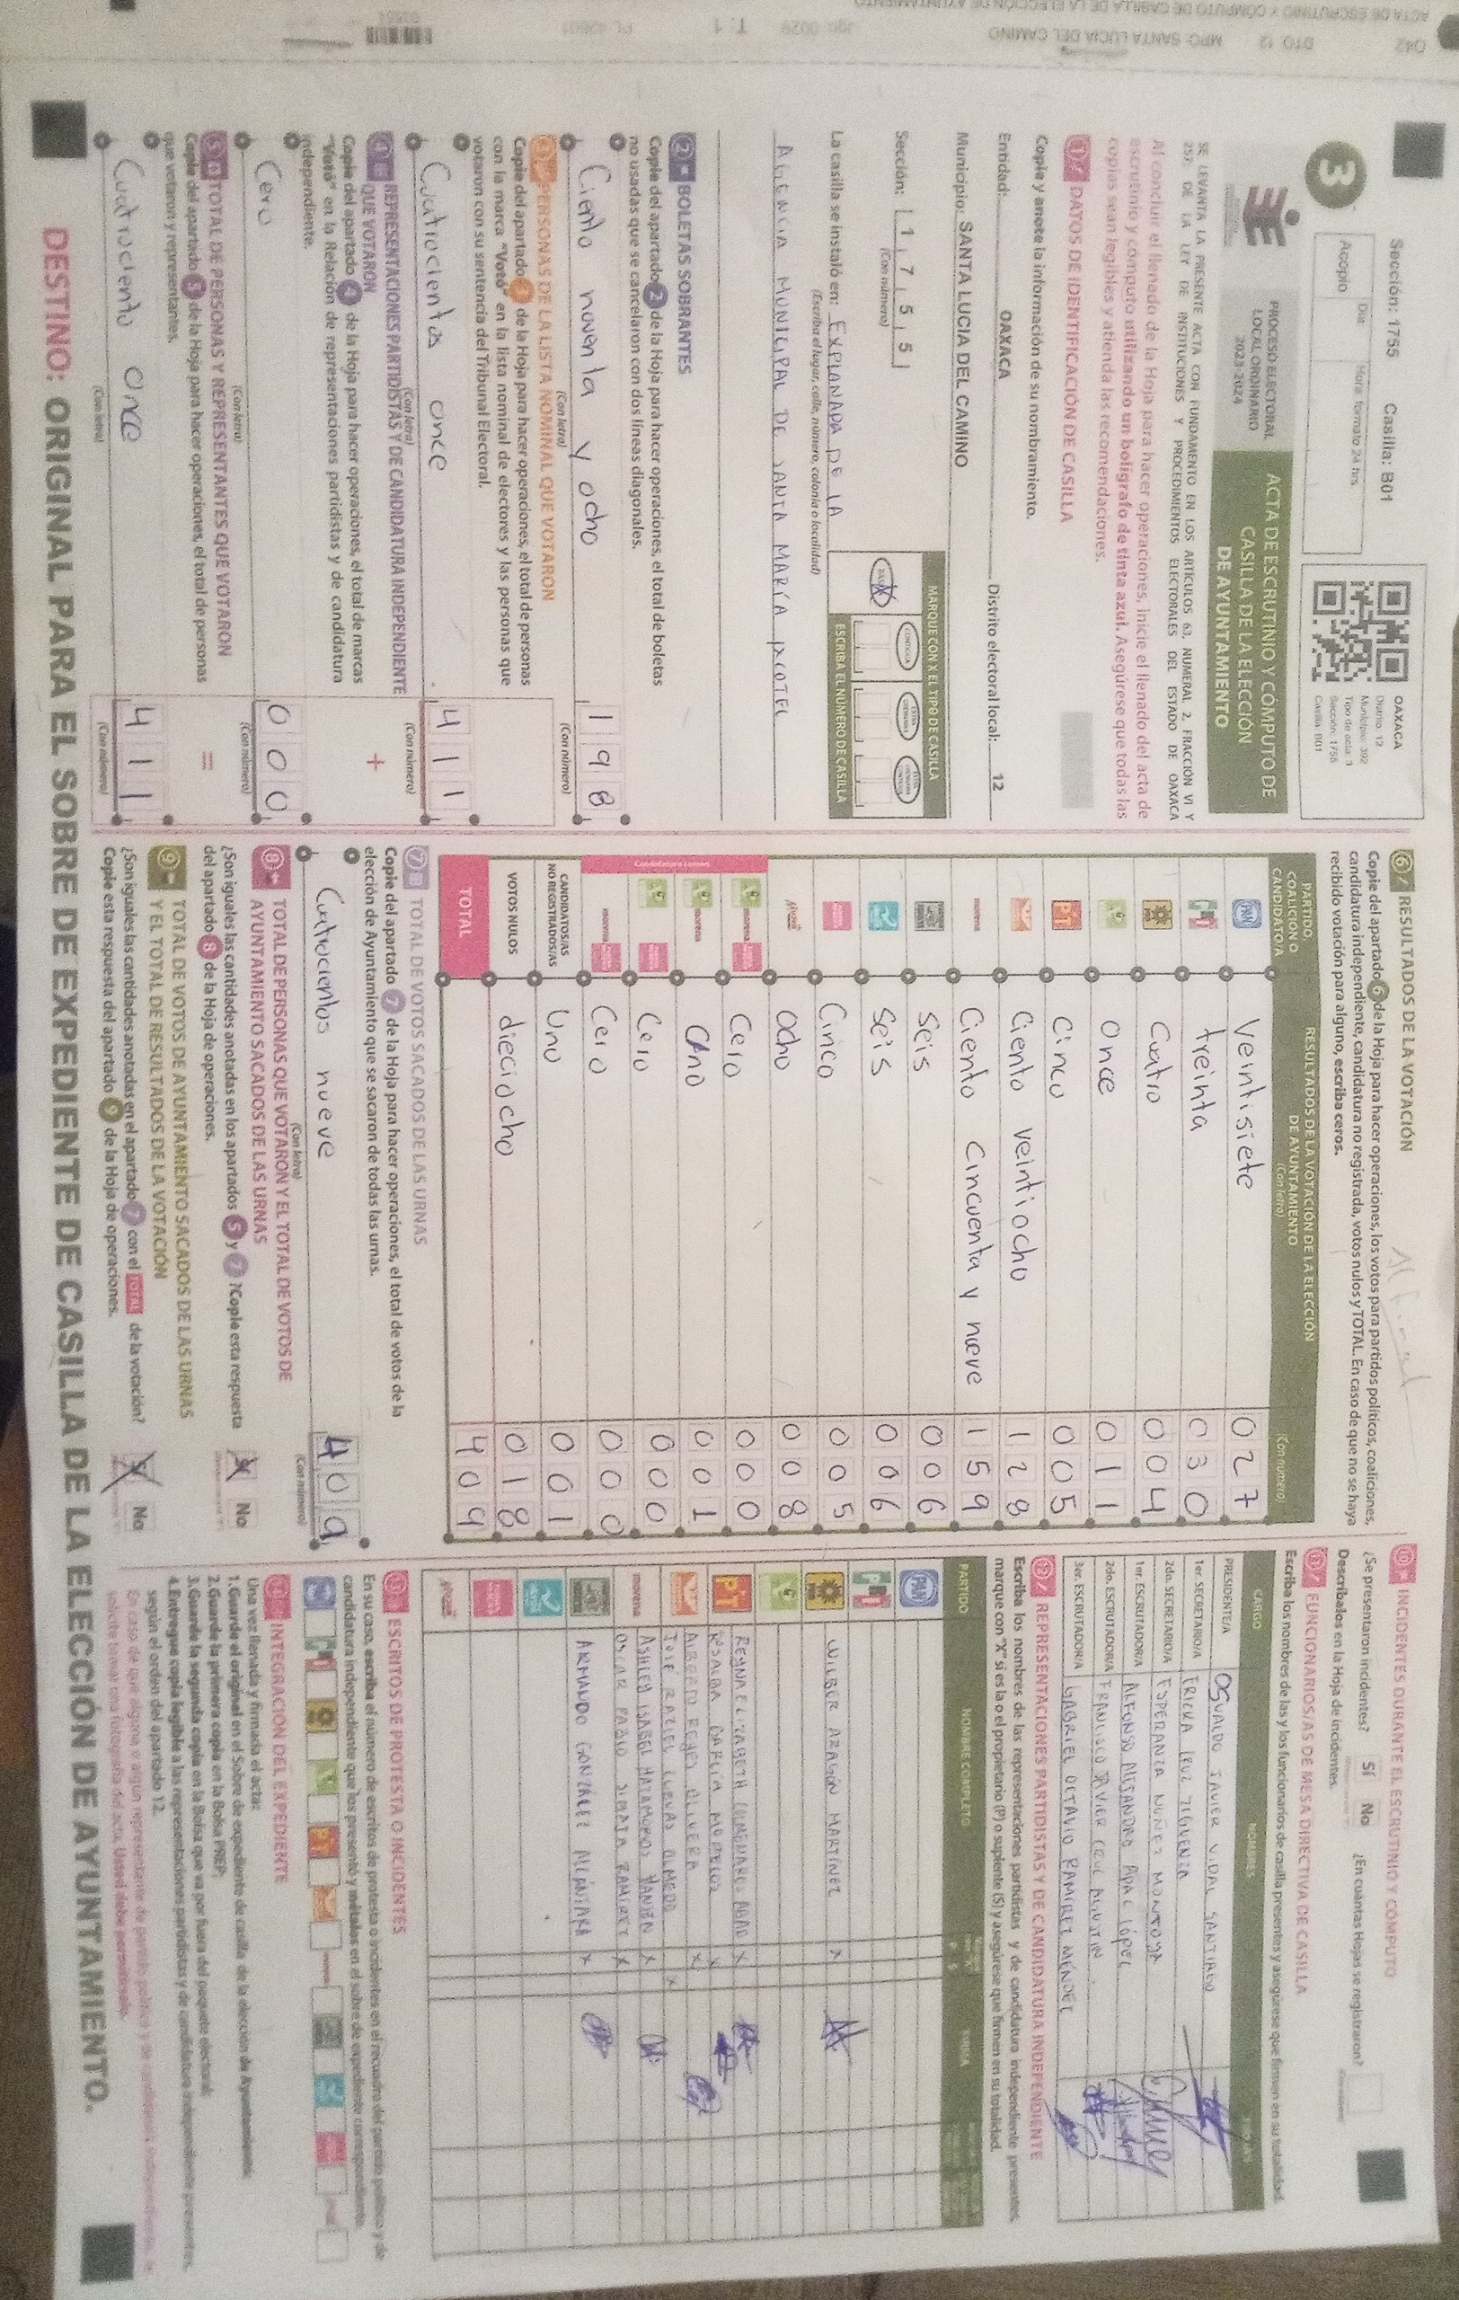 Sección: 1755 Casilla: B01
Acopio
Día
Hora: formato 24 hrs.
OAXACA
Distrito: 12
Municipio: 392
Tipo de acta: 3
Sección: 1755
Casilla: B01
3
PROCESO ELECTORAL
LOCAL ORDINARIO
2023-2024
ACTA DE ESCRUTINIO Y CÓMPUTO DE
CASILLA DE LA ELECCIÓN
DE AYUNTAMIENTO
SE LEVANTA LA PRESENTE ACTA CON FUNDAMENTO EN LOS ARTÍCULOS 63, NUMERAL 2, FRACCIÓN VI Y
257, DE LA LEY DE INSTITUCIONES Y PROCEDIMIENTOS ELECTORALES DEL ESTADO DE OAXACA
Al concluir el llenado de la Hoja para hacer operaciones, inicie el llenado del acta de
escrutinio y cómputo utilizando un bolígrafo de tinta azul. Asegúrese que todas las
copias sean legibles y atienda las recomendaciones.
1 DATOS DE IDENTIFICACIÓN DE CASILLA
Copie y anote la información de su nombramiento.
Entidad: OAXACA Distrito electoral local: 12
Municipio: SANTA LUCIA DEL CAMINO
Sección: 1 7 5 5
(Con número)
MARQUE CON X EL TIPO DE CASILLA
ESCRIBA EL NÚMERO DE CASILLA
La casilla se instaló en: EXPLANADA DE LA
(Escriba el lugar, calle, número, colonia o localidad)
AGENCIA MUNICIPAL DE SANTA MARÍA IXCOTEL
2 BOLETAS SOBRANTES
Copie del apartado 2 de la Hoja para hacer operaciones, el total de boletas
no usadas que se cancelaron con dos líneas diagonales.
Ciento noventa y ocho 198
(Con letra) (Con número)
3 PERSONAS DE LA LISTA NOMINAL QUE VOTARON
Copie del apartado 3 de la Hoja para hacer operaciones, el total de personas
con la marca "Votó" en la lista nominal de electores y las personas que
votaron con su sentencia del Tribunal Electoral.
Cuatrocientos once 411
(Con letra) (Con número)
4 REPRESENTACIONES PARTIDISTAS Y DE CANDIDATURA INDEPENDIENTE
QUE VOTARON
+
Copie del apartado 4 de la Hoja para hacer operaciones, el total de marcas
"Votó" en la Relación de representaciones partidistas y de candidatura
independiente.
Cero 000
(Con letra) (Con número)
5 TOTAL DE PERSONAS Y REPRESENTANTES QUE VOTARON
=
Copie del apartado 5 de la Hoja para hacer operaciones, el total de personas
que votaron y representantes.
Cuatrociento once 411
(Con letra) (Con número)
6 RESULTADOS DE LA VOTACIÓN
Copie del apartado 6 de la Hoja para hacer operaciones, los votos para partidos políticos, coaliciones,
candidatura independiente, candidatura no registrada, votos nulos y TOTAL. En caso de que no se haya
recibido votación para alguno, escriba ceros.
PARTIDO,
COALICIÓN O
CANDIDATO/A
RESULTADOS DE LA VOTACIÓN DE LA ELECCIÓN
DE AYUNTAMIENTO
(Con letra) (Con número)
PAN Veintisiete 027
PRI treinta 030
Cuatro 004
once 011
PT Cinco 005
Ciento veintiocho 128
morena Ciento Cincuenta y nueve 159
Seis 006
Seis 006
Cinco 005
ocho 008
morena Cero 000
morena Uno 001
Cero 000
morena Cero 000
CANDIDATOS/AS
NO REGISTRADOS/AS Uno 001
VOTOS NULOS dieciocho 018
TOTAL 409
7 TOTAL DE VOTOS SACADOS DE LAS URNAS
Copie del apartado 7 de la Hoja para hacer operaciones, el total de votos de la
elección de Ayuntamiento que se sacaron de todas las urnas.
Cuatrocientos nueve 409
(Con letra) (Con número)
8 TOTAL DE PERSONAS QUE VOTARON Y EL TOTAL DE VOTOS DE
AYUNTAMIENTO SACADOS DE LAS URNAS
¿Son iguales las cantidades anotadas en los apartados 5 y 7? Copie esta respuesta
del apartado 8 de la Hoja de operaciones.
Sí No
9 TOTAL DE VOTOS DE AYUNTAMIENTO SACADOS DE LAS URNAS
Y EL TOTAL DE RESULTADOS DE LA VOTACIÓN
¿Son iguales las cantidades anotadas en el apartado 7 con el TOTAL de la votación?
Copie esta respuesta del apartado 9 de la Hoja de operaciones.
Sí No
10 INCIDENTES DURANTE EL ESCRUTINIO Y CÓMPUTO
¿Se presentaron incidentes? Sí No ¿En cuántas Hojas se registraron?
Descríbalos en la Hoja de incidentes.
11 FUNCIONARIOS/AS DE MESA DIRECTIVA DE CASILLA
Escriba los nombres de las y los funcionarios de casilla presentes y asegúrese que firmen en su totalidad.
CARGO NOMBRES
PRESIDENTE/A OSVALDO JAVIER VIDAL SANTIAGO
1er. SECRETARIO/A ERICKA CRUZ SIGUENZA
2do. SECRETARIO/A ESPERANZA NUÑEZ MONTOYA
1er. ESCRUTADOR/A ALFONSO ALEJANDRO APAC LÓPEZ
2do. ESCRUTADOR/A FRANCISCO JAVIER CRUZ
3er. ESCRUTADOR/A GABRIEL OCTAVIO RAMIREZ MENDEZ
12 REPRESENTACIONES PARTIDISTAS Y DE CANDIDATURA INDEPENDIENTE
Escriba los nombres de las representaciones partidistas y de candidatura independiente presentes,
marque con "X" si es la o el propietario (P) o suplente (S) y asegúrese que firmen en su totalidad.
PARTIDO NOMBRE COMPLETO FIRMA
PAN
PRI
WILBER ARAGÓN MARTÍNEZ X
REYNA ELIZABETH COLMENARES ABAD X
PT ROSALBA X
ALBERTO REYES OLIVERA X
JOSE RAZIEL CUEVAS OLMEDO X
morena ASHLEY ISABEL MATAMOROS X
OSCAR PABLO RAMIREZ X
ARMANDO GONZÁLEZ ALCÁNTARA X
13 ESCRITOS DE PROTESTA O INCIDENTES
En su caso, escriba el número de escritos de protesta o incidentes en el recuadro del partido político y de
candidatura independiente que los presentó y métalas en el sobre de expediente correspondiente.
14 INTEGRACIÓN DEL EXPEDIENTE
Una vez llenada y firmada el acta:
1. Guarde el original en el Sobre de expediente de casilla de la elección de Ayuntamiento.
2. Guarde la primera copia en la Bolsa PREP.
3. Guarde la segunda copia en la Bolsa que va por fuera del paquete electoral.
4. Entregue copia legible a las representaciones partidistas y de candidatura independiente presentes,
según el orden del apartado 12.
DESTINO: ORIGINAL PARA EL SOBRE DE EXPEDIENTE DE CASILLA DE LA ELECCIÓN DE AYUNTAMIENTO.
ACTA DE ESCRUTINIO Y CÓMPUTO DE CASILLA DE LA ELECCIÓN DE AYUNTAMIENTO
DTO. 12 MPO. SANTA LUCIA DEL CAMINO